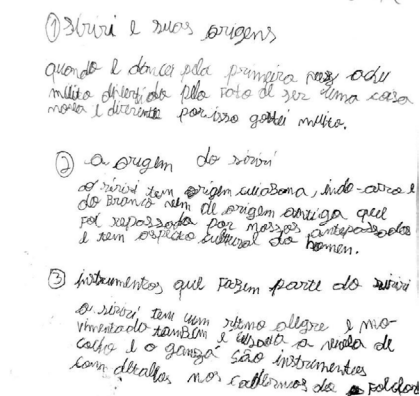 ① siriri e suas origens
quando e dancei pela primeira vez, achei
muito divertido pelo fato de ser uma coisa
nova e diferente por isso gostei muito.
② a origem do siriri
o siriri tem origem cuiabana, indo-afro e
do Branco vem de origem antiga que
foi repassada por nossos antepassados
e tem aspecto cultural do homen.
③ instrumentos que fazem parte do siriri
o siriri tem um ritmo alegre e mo-
vimentado também e a viola de
cocho e o ganzá são instrumentos
com detalhes nos cadernos do folclore